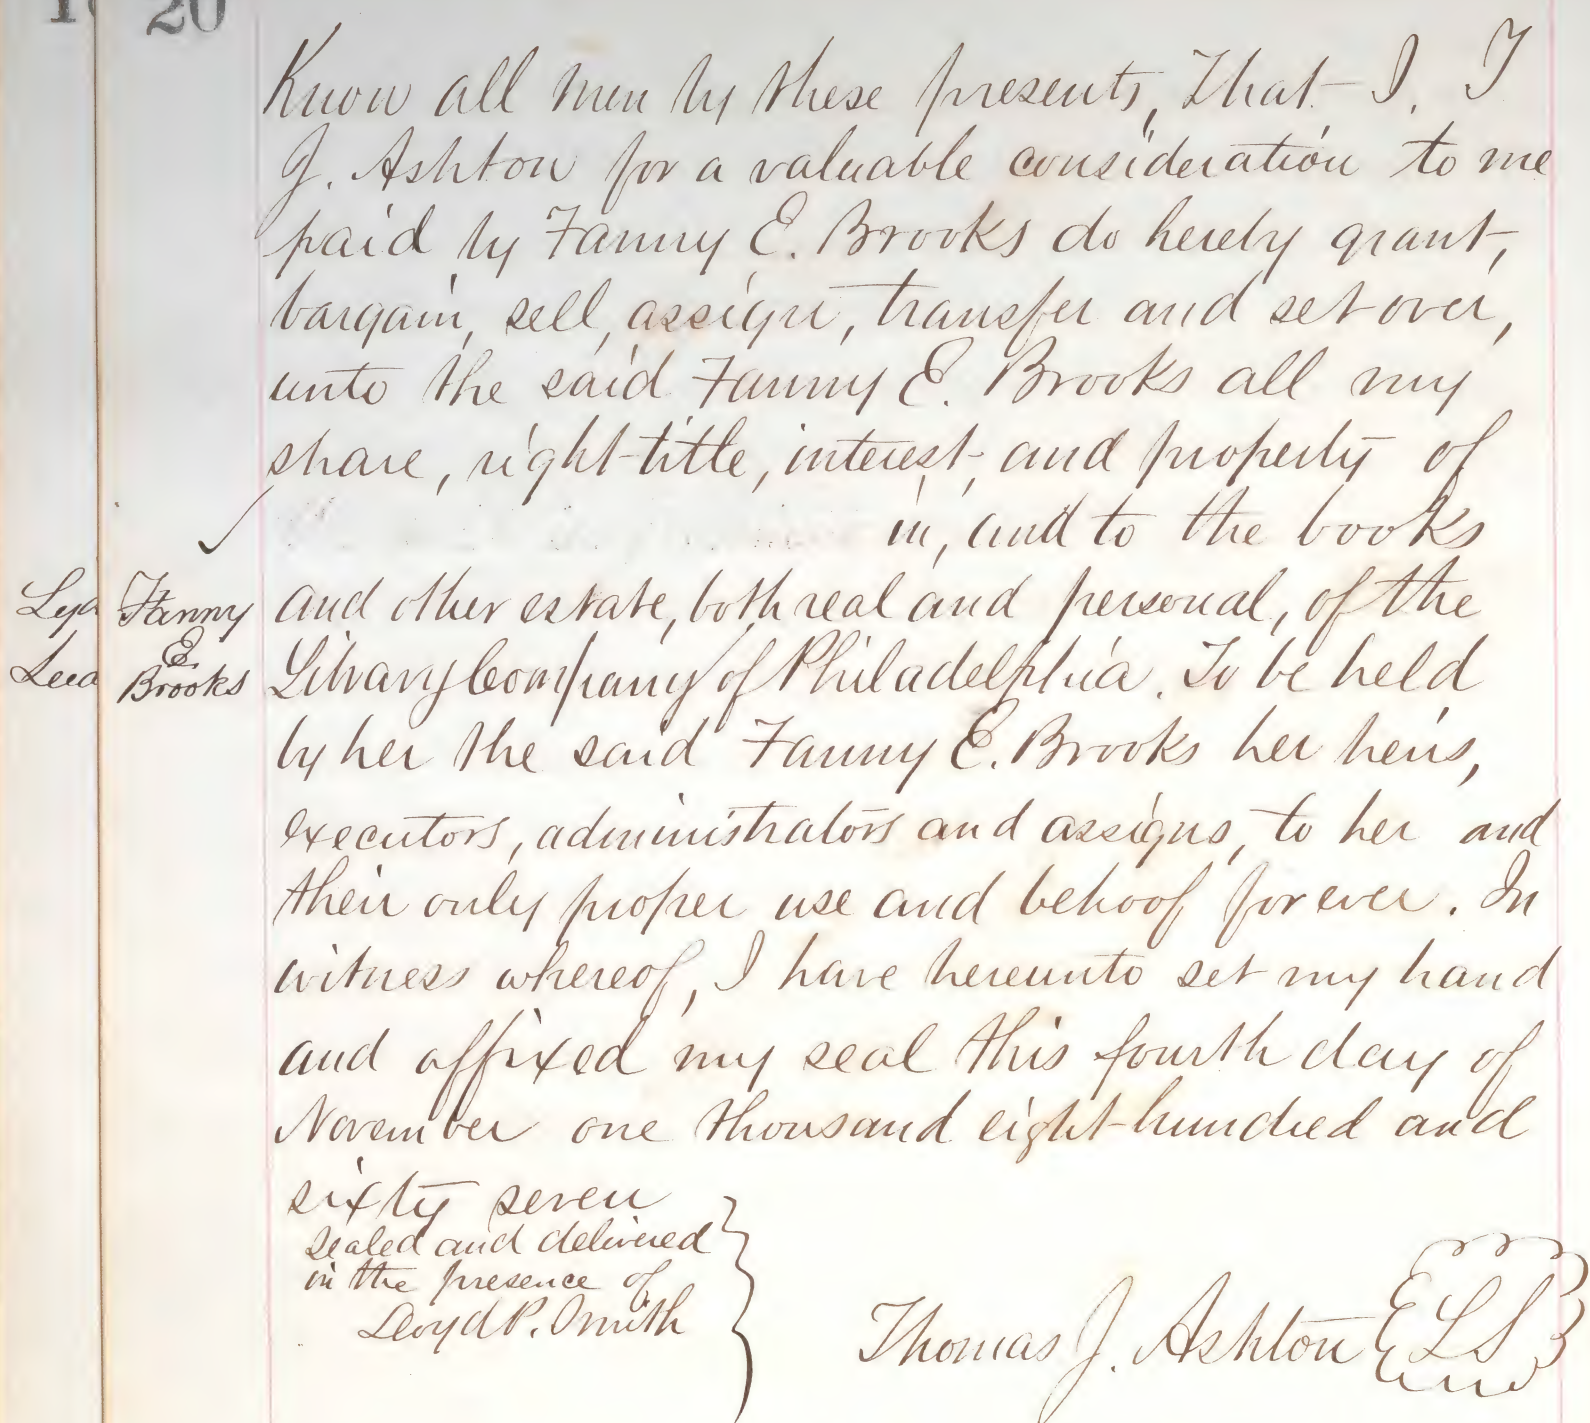 20
Know all men by these presents, That I, T
J. Ashton for a valuable consideration to me
paid by Fanny E. Brooks do hereby grant,
bargain, sell, assign, transfer and set over,
unto the said Fanny E. Brooks all my
share, right title, interest, and property of
in, and to the books
Fanny
E.
Brooks
and other estate, both real and personal, of the
Library Company of Philadelphia. To be held
by her the said Fanny E. Brooks her heirs,
executors, administrators and assigns, to her and
their only proper use and behoof forever. In
witness whereof, I have hereunto set my hand
and affixed my seal this fourth day of
November one thousand eight hundred and
sixty seven
Sealed and delivered
in the presence of
Lloyd P. Smith
Thomas J. Ashton LS